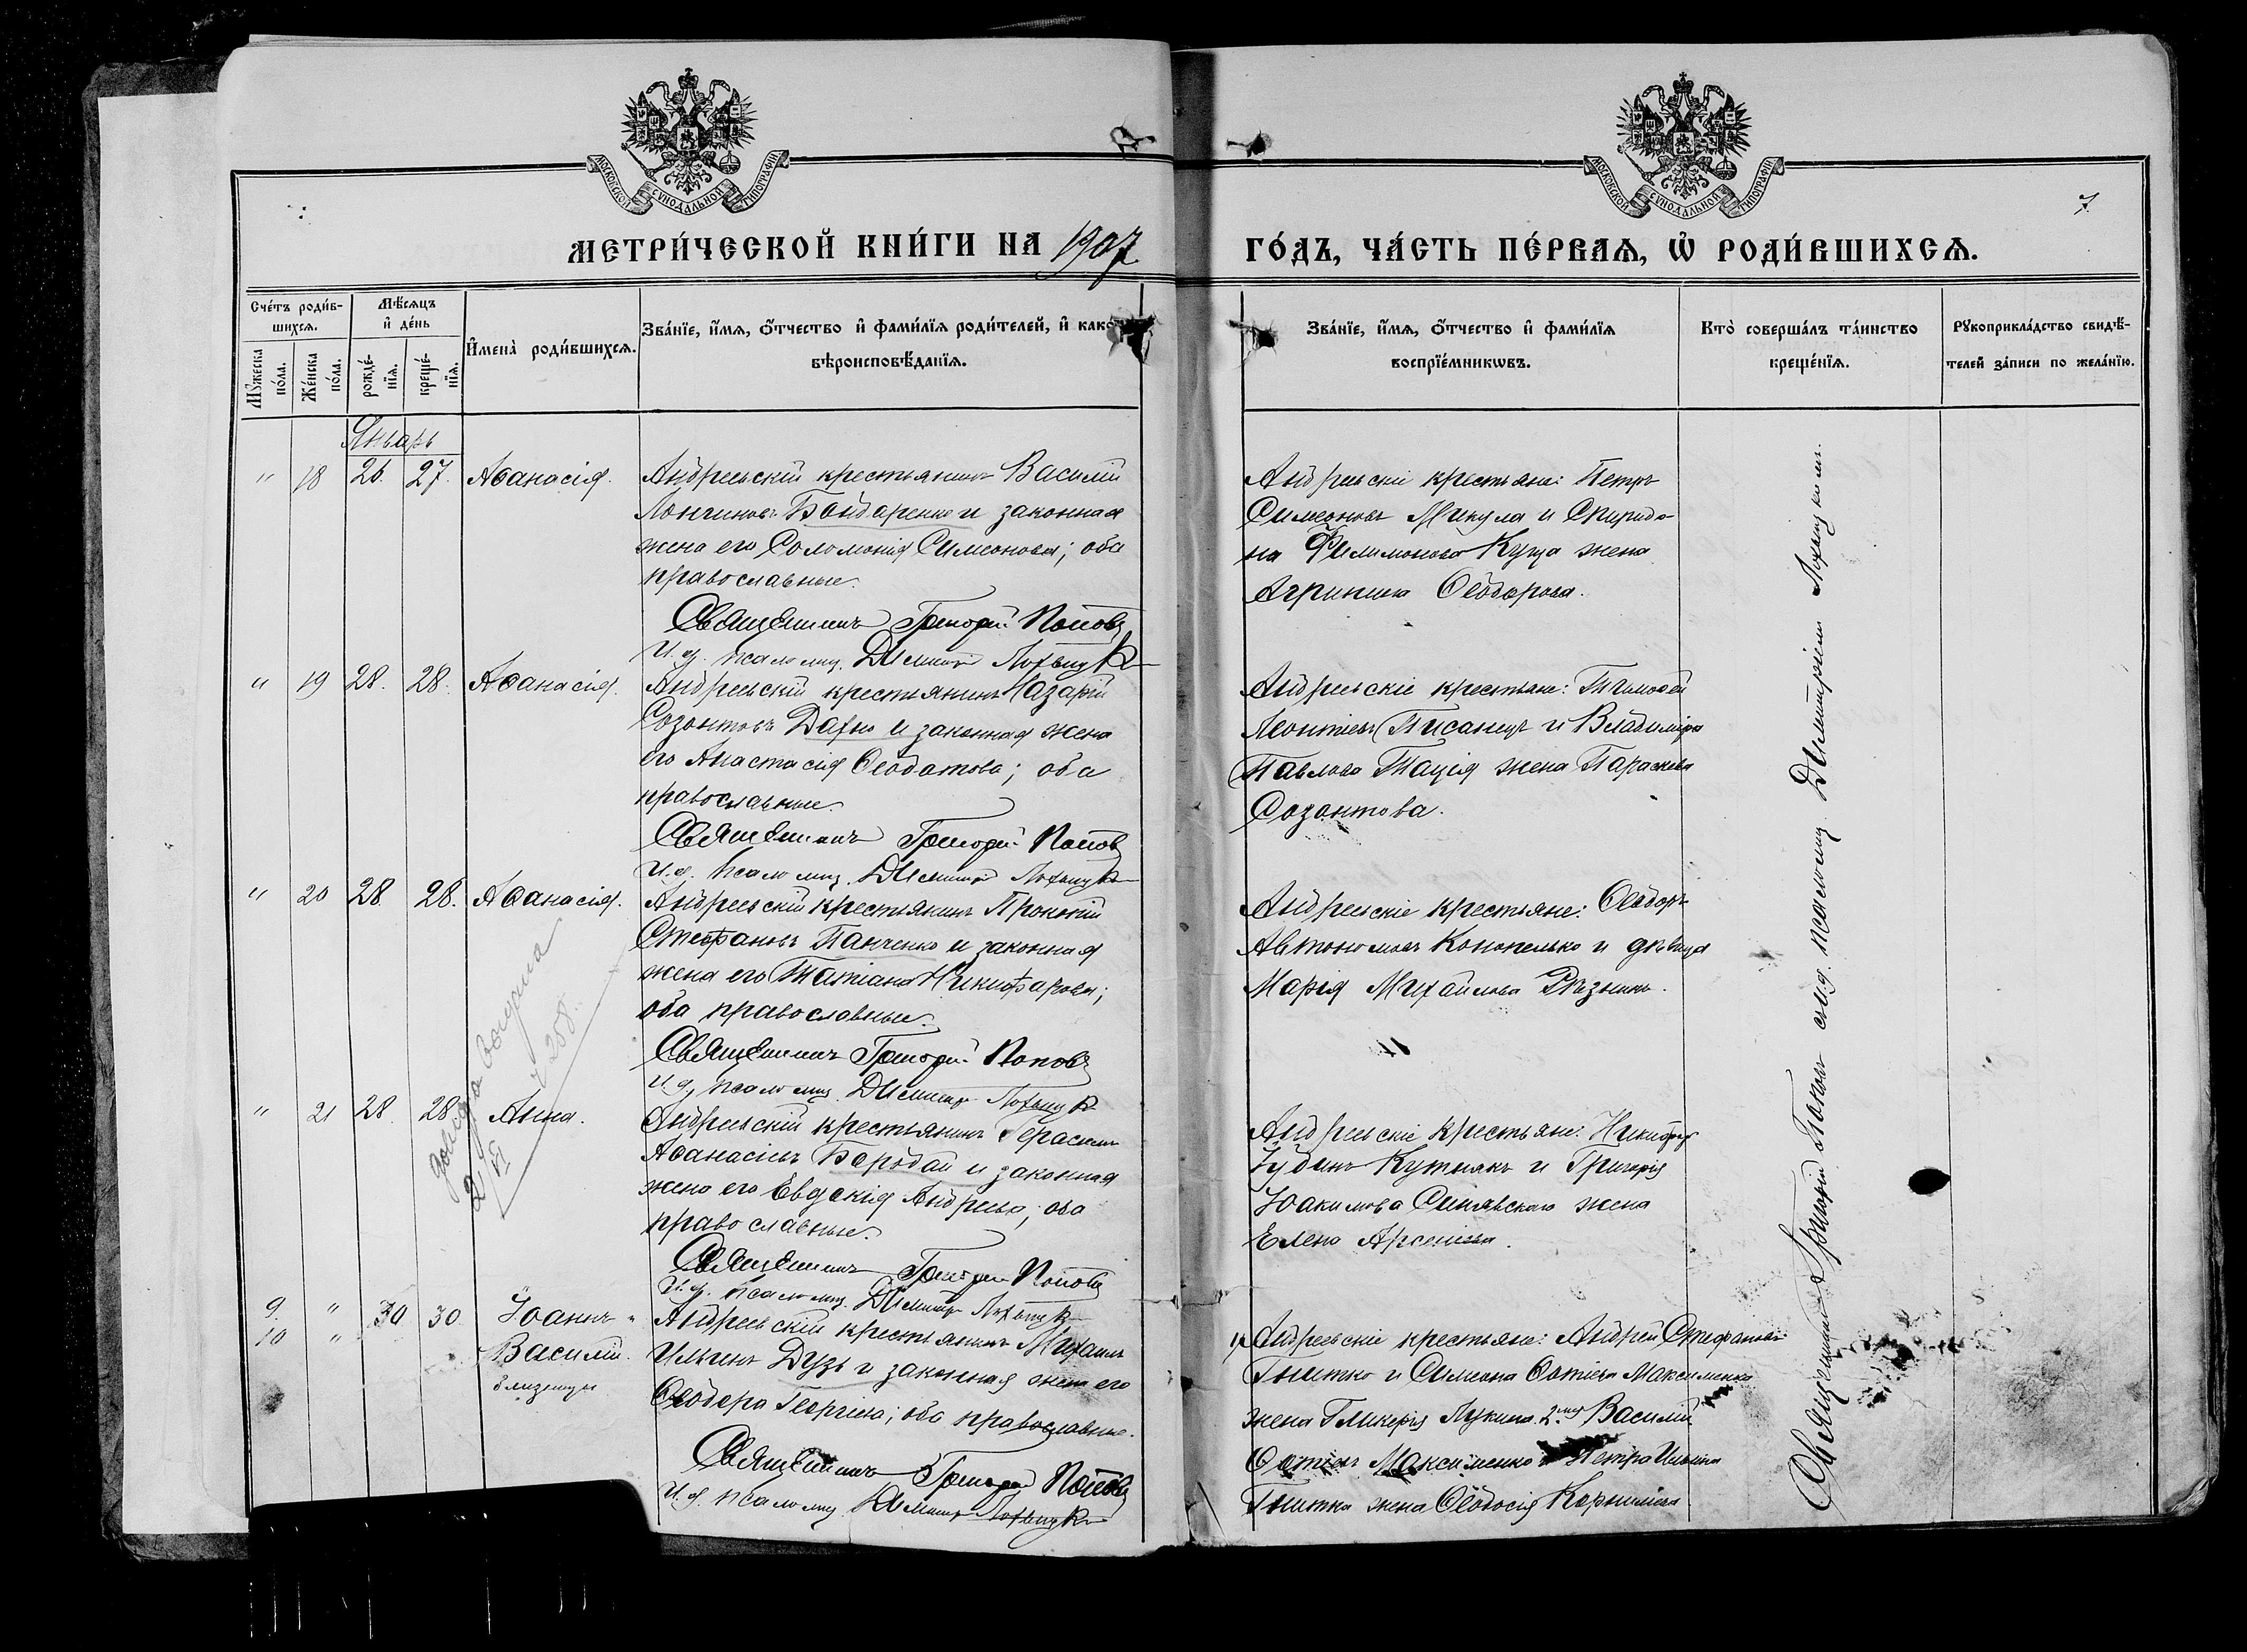 МОСКОВСКОЙ СѴНОДАЛЬНОЙ ТИПОГРАФІИ
МОСКОВСКОЙ СѴНОДАЛЬНОЙ ТИПОГРАФІИ
7.
МЕТРИ́ЧЕСКОЙ КНИ́ГИ НА 1907 ГО́ДЪ, ЧА́СТЬ ПЕ́РВАѦ, Ѡ҆ РОДИ́ВШИХСѦ.
Сче́тъ роди́в-
шихсѧ.
Мѣ́сѧцъ
и҆ де́нь
Мꙋжеска
по́ла.
Же́нска
по́ла.
рожде́-
нїѧ.
креще́-
нїѧ.
И҆мена̀ роди́вшихсѧ.
Зва́нїе, и҆́мѧ, ѻ҆́тчество и҆ фамилїѧ роди́телей, и҆ како
вѣроисповѣ́данїѧ.
Зва́нїе, и҆́мѧ, ѻ҆́тчество и҆ фами́лїѧ
воспрїе́мникѡвъ.
Кто̀ соверша́лъ та́инство
креще́нїѧ.
Рꙋкоприкла́дство свидѣ́-
телей за́писи по жела́нїю.
Январь
" 18 26. 27. Аѳанасія.
Андреевскій крестьянинъ Василій
Логгиновъ Бондаренко и законная
жена его Соломонія Симеонова; оба
православные.
Священникъ Григорій Поповъ
И. д. псаломщ. Димитрій
Андреевскіе крестьяне: Петръ
Симеоновъ Микула и Спиридо-
на Филимонова Куца жена
Агриппина Ѳеодорова.
" 19 28. 28. Аѳанасія.
Андреевскій крестьянинъ Назарій
Созонтовъ Дахно и законная жена
его Анастасія Ѳеодотова; оба
православные.
Священникъ Григорій Поповъ
И. д. псаломщ. Димитрій
Андреевскіе крестьяне: Тимоѳей
Леонтіевъ Писанецъ и Владиміра
Павлова жена Параскева
Созонтова.
" 20 28. 28. Аѳанасія.
Андреевскій крестьянинъ Прокопій
Стефановъ Панченко и законная
жена его Татіана Никифорова;
оба православные.
Священникъ Григорій Поповъ
И. д. псаломщ. Димитрій
Андреевскіе крестьяне: Ѳеодоръ
Автономовъ Конопелько и дѣвица
Марія Михайлова
258.
2/VI
" 21 28. 28. Анна.
Андреевскій крестьянинъ Герасимъ
Аѳанасіевъ Бородай и законная
жена его Евдокія Андреева; оба
православные.
Священникъ Григорій Поповъ
И. д. псаломщ. Димитрій
Андреевскіе крестьяне: Никифоръ
и Григорія
Іоакимова Синявскаго жена
Елена Арсеніева.
9. " 30 30 Іоаннъ
10 " Василій.
близнецы
Андреевскій крестьянинъ Михаилъ
Ильинъ Дузь и законная жена его
Ѳеодора Георгіева; оба православные.
Священникъ Григорій Поповъ
И. д. псаломщ. Димитрій
Андреевскіе крестьяне: Андрей Стефановъ
и Симеона Максименка
жена Гликерія Лукина. Василій
Максименко и Петра Ильина
жена Ѳеодосія
Священникъ Григорій Поповъ псаломщ. Димитріемъ